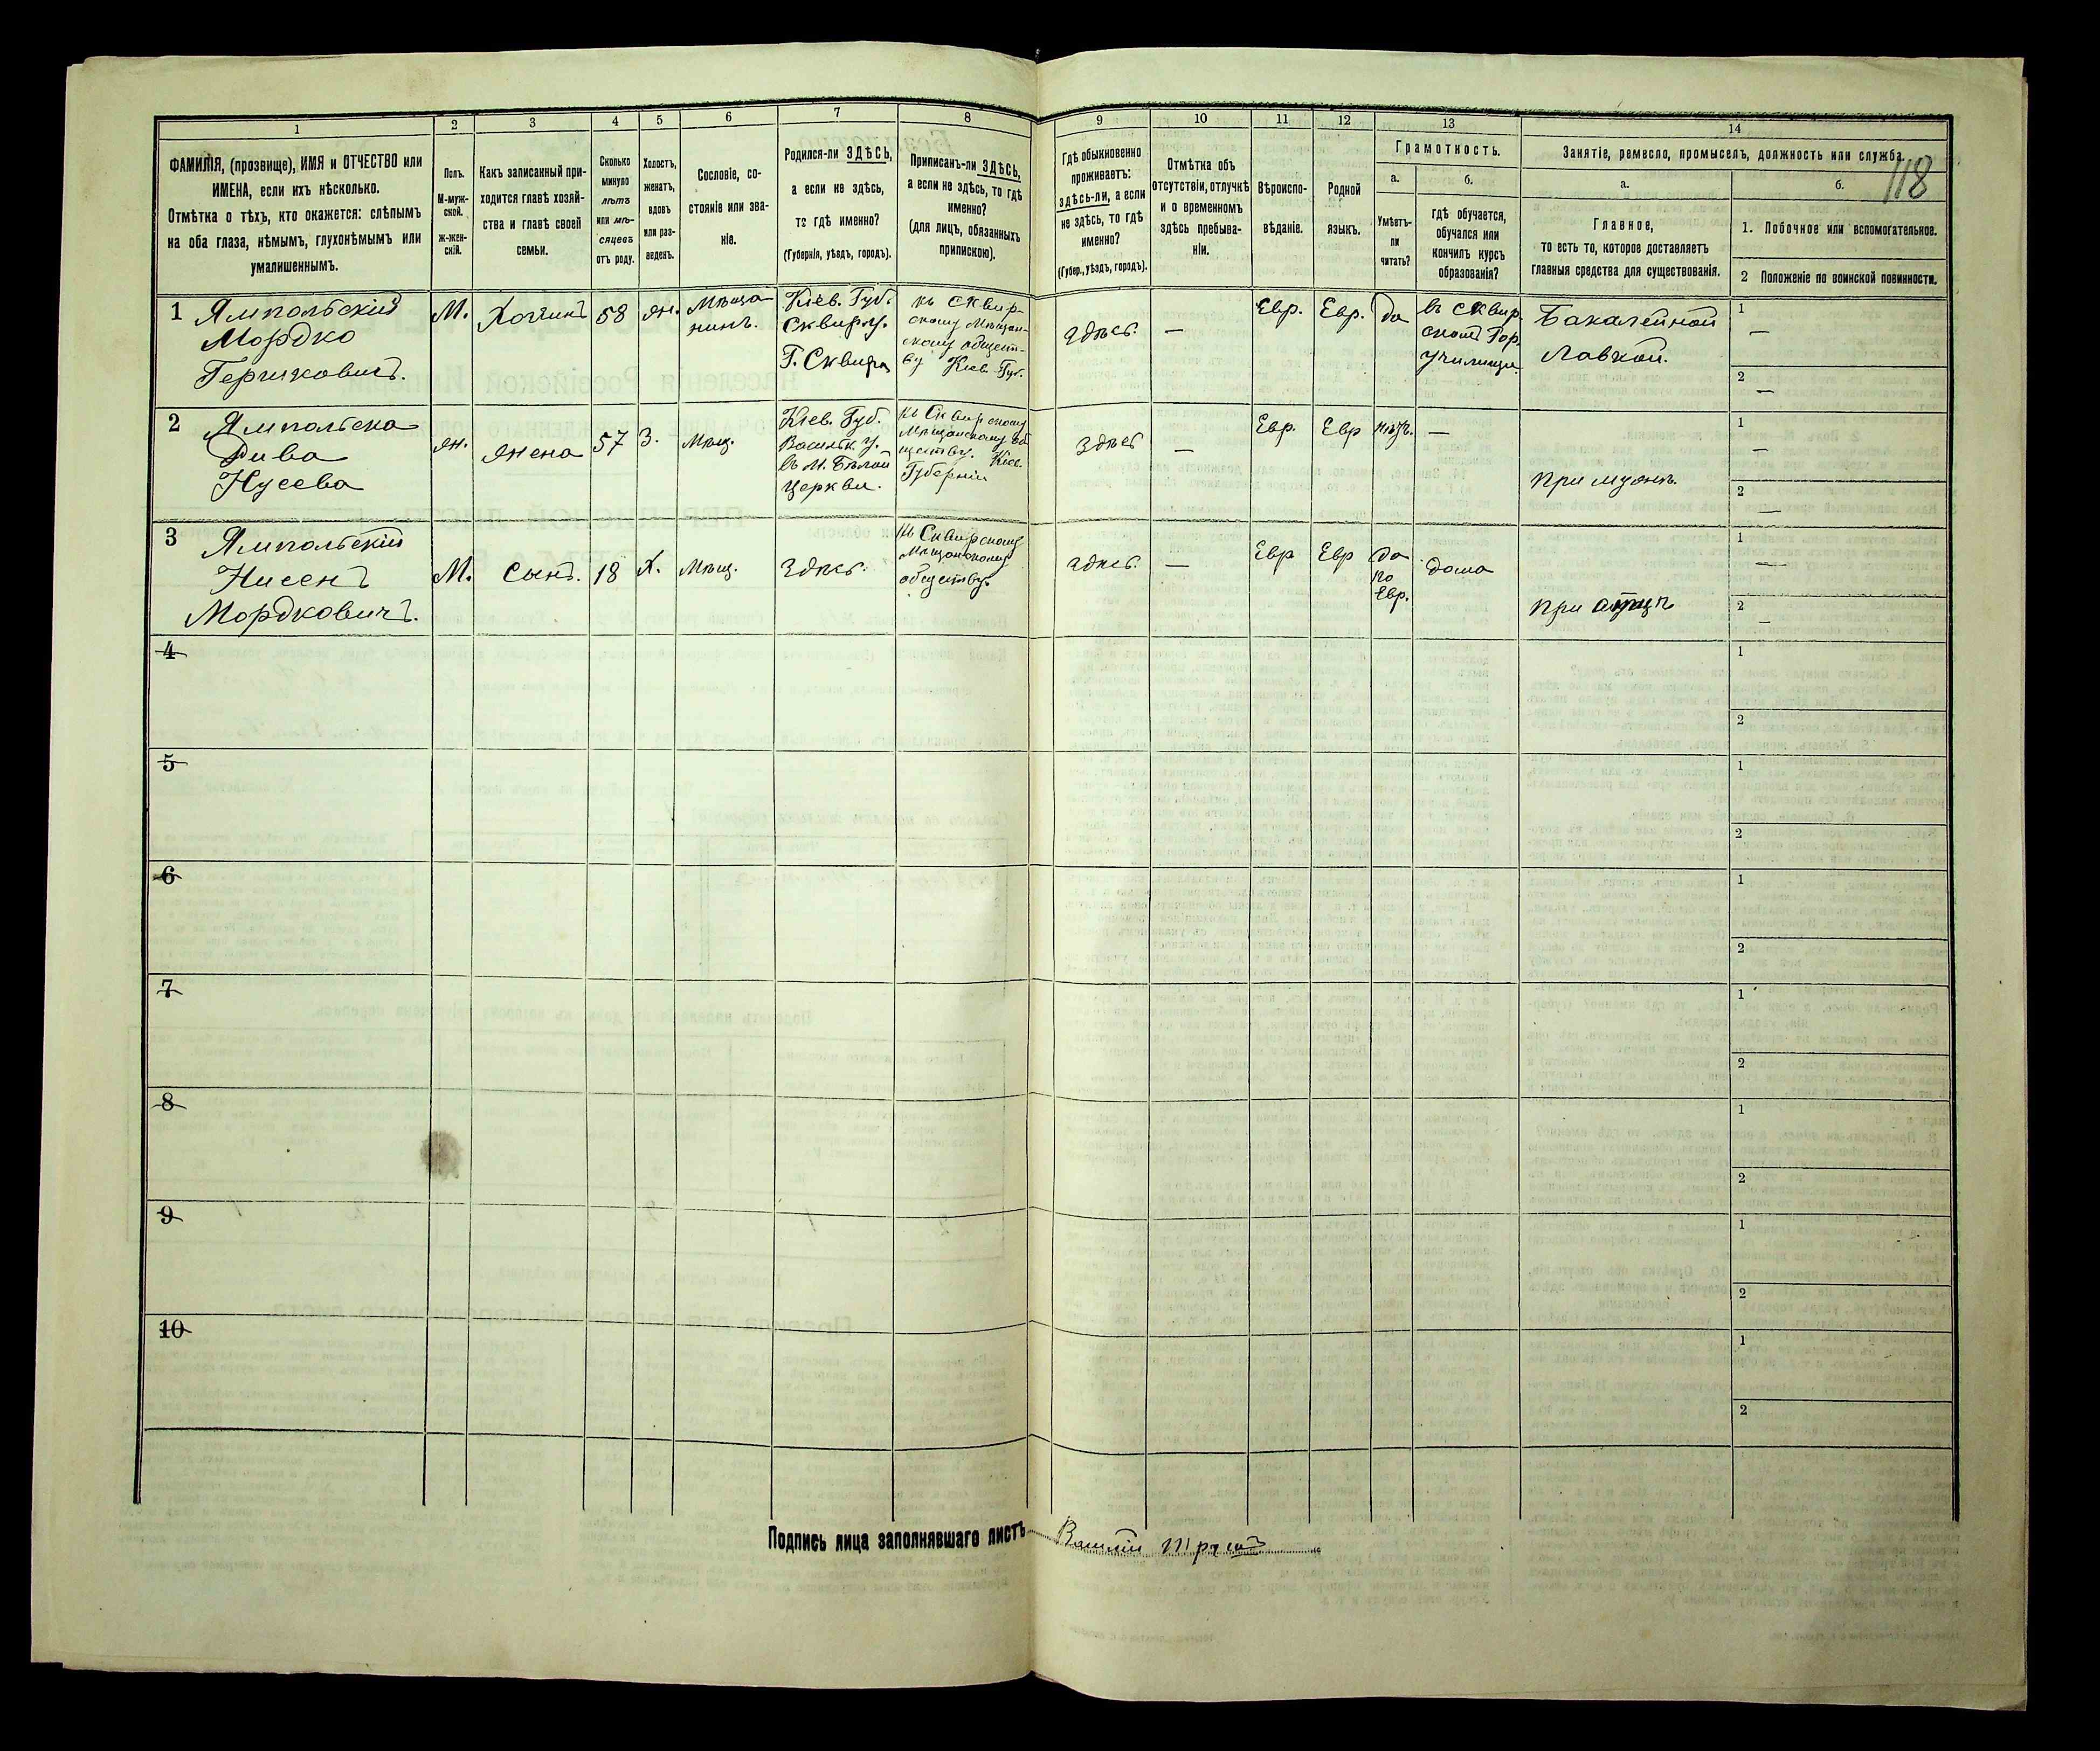 118
1 2 3 4 5 6 7 8 9 10 11 12 13 14
ФАМИЛІЯ, (прозвище), ИМЯ и ОТЧЕСТВО или
ИМЕНА, если ихъ нѣсколько.
Отмѣтка о тѣхъ, кто окажется: слѣпымъ
на оба глаза, нѣмымъ, глухонѣмымъ или
умалишеннымъ.
Полъ.
М-муж-
ской.
ж-жен-
скій.
Какъ записанный при-
ходится главѣ хозяй-
ства и главѣ своей
семьи.
Сколько
минуло
лѣтъ
или мѣ-
сяцевъ
отъ роду.
Холостъ,
женатъ,
вдовъ
или раз-
веденъ.
Сословіе, со-
стояніе или зва-
ніе.
Родился-ли ЗДѢСЬ,
а если не здѣсь,
то гдѣ именно?
(Губернія, уѣздъ, городъ).
Приписанъ-ли ЗДѢСЬ,
а если не здѣсь, то гдѣ
именно?
(для лицъ, обязанныхъ
припискою).
Гдѣ обыкновенно
проживаетъ:
здѣсь-ли, а если
не здѣсь, то гдѣ
именно?
(Губер., уѣздъ, городъ).
Отмѣтка объ
отсутствіи, отлучкѣ
и о временномъ
здѣсь пребыва-
ніи.
Вѣроиспо-
вѣданіе.
Родной
языкъ.
Грамотность.
а.
Умѣетъ-
ли
читать?
б.
гдѣ обучается,
обучался или
кончилъ курсъ
образованія?
Занятіе, ремесло, промыселъ, должность или служба.
а.
Главное,
то есть то, которое доставляетъ
главныя средства для существованія.
б.
1. Побочное или вспомогательное.
2 Положеніе по воинской повинности.
1 Ямпольскій
Мордко
Гершковичъ.
М.
58
жн.
Мѣща
нинъ.
Кіев. Губ.
Сквир. у.
Г. Сквира
къ Сквир-
скому Мѣщан-
скому общест-
ву Кіев. Губ.
здѣсь.
—
Евр.
Евр.
да
въ Сквир.
ском Гор.
училищѣ
Бакалейной
Лавкой.
1 —
2 —
2 Ямпольска
Рива
Нусева
жн.
жена
57
З.
Мѣщ.
Кіев. Губ.
Васильк. у.
въ М. Бѣлой
Церкви.
къ Сквирскому
Мѣщанскому об
ществу. Кіев.
Губерніи
здѣсь
—
Евр.
Евр
нѣтъ.
—
При мужѣ.
1 —
2
3 Ямпольскій
Нисенъ
Мордковичъ.
М.
Сынъ.
18
Х.
Мѣщ.
Здѣсь.
къ Сквирскому
Мѣщанскому
обществу
здѣсь.
—
Евр
Евр
да
по
Евр.
дома
При отцѣ
1 —
2 —
4 1
2
5 1
2
6 1
2
7 1
2
8 1
2
9 1
2
10 1
2
Подпись лица заполнявшаго листъ